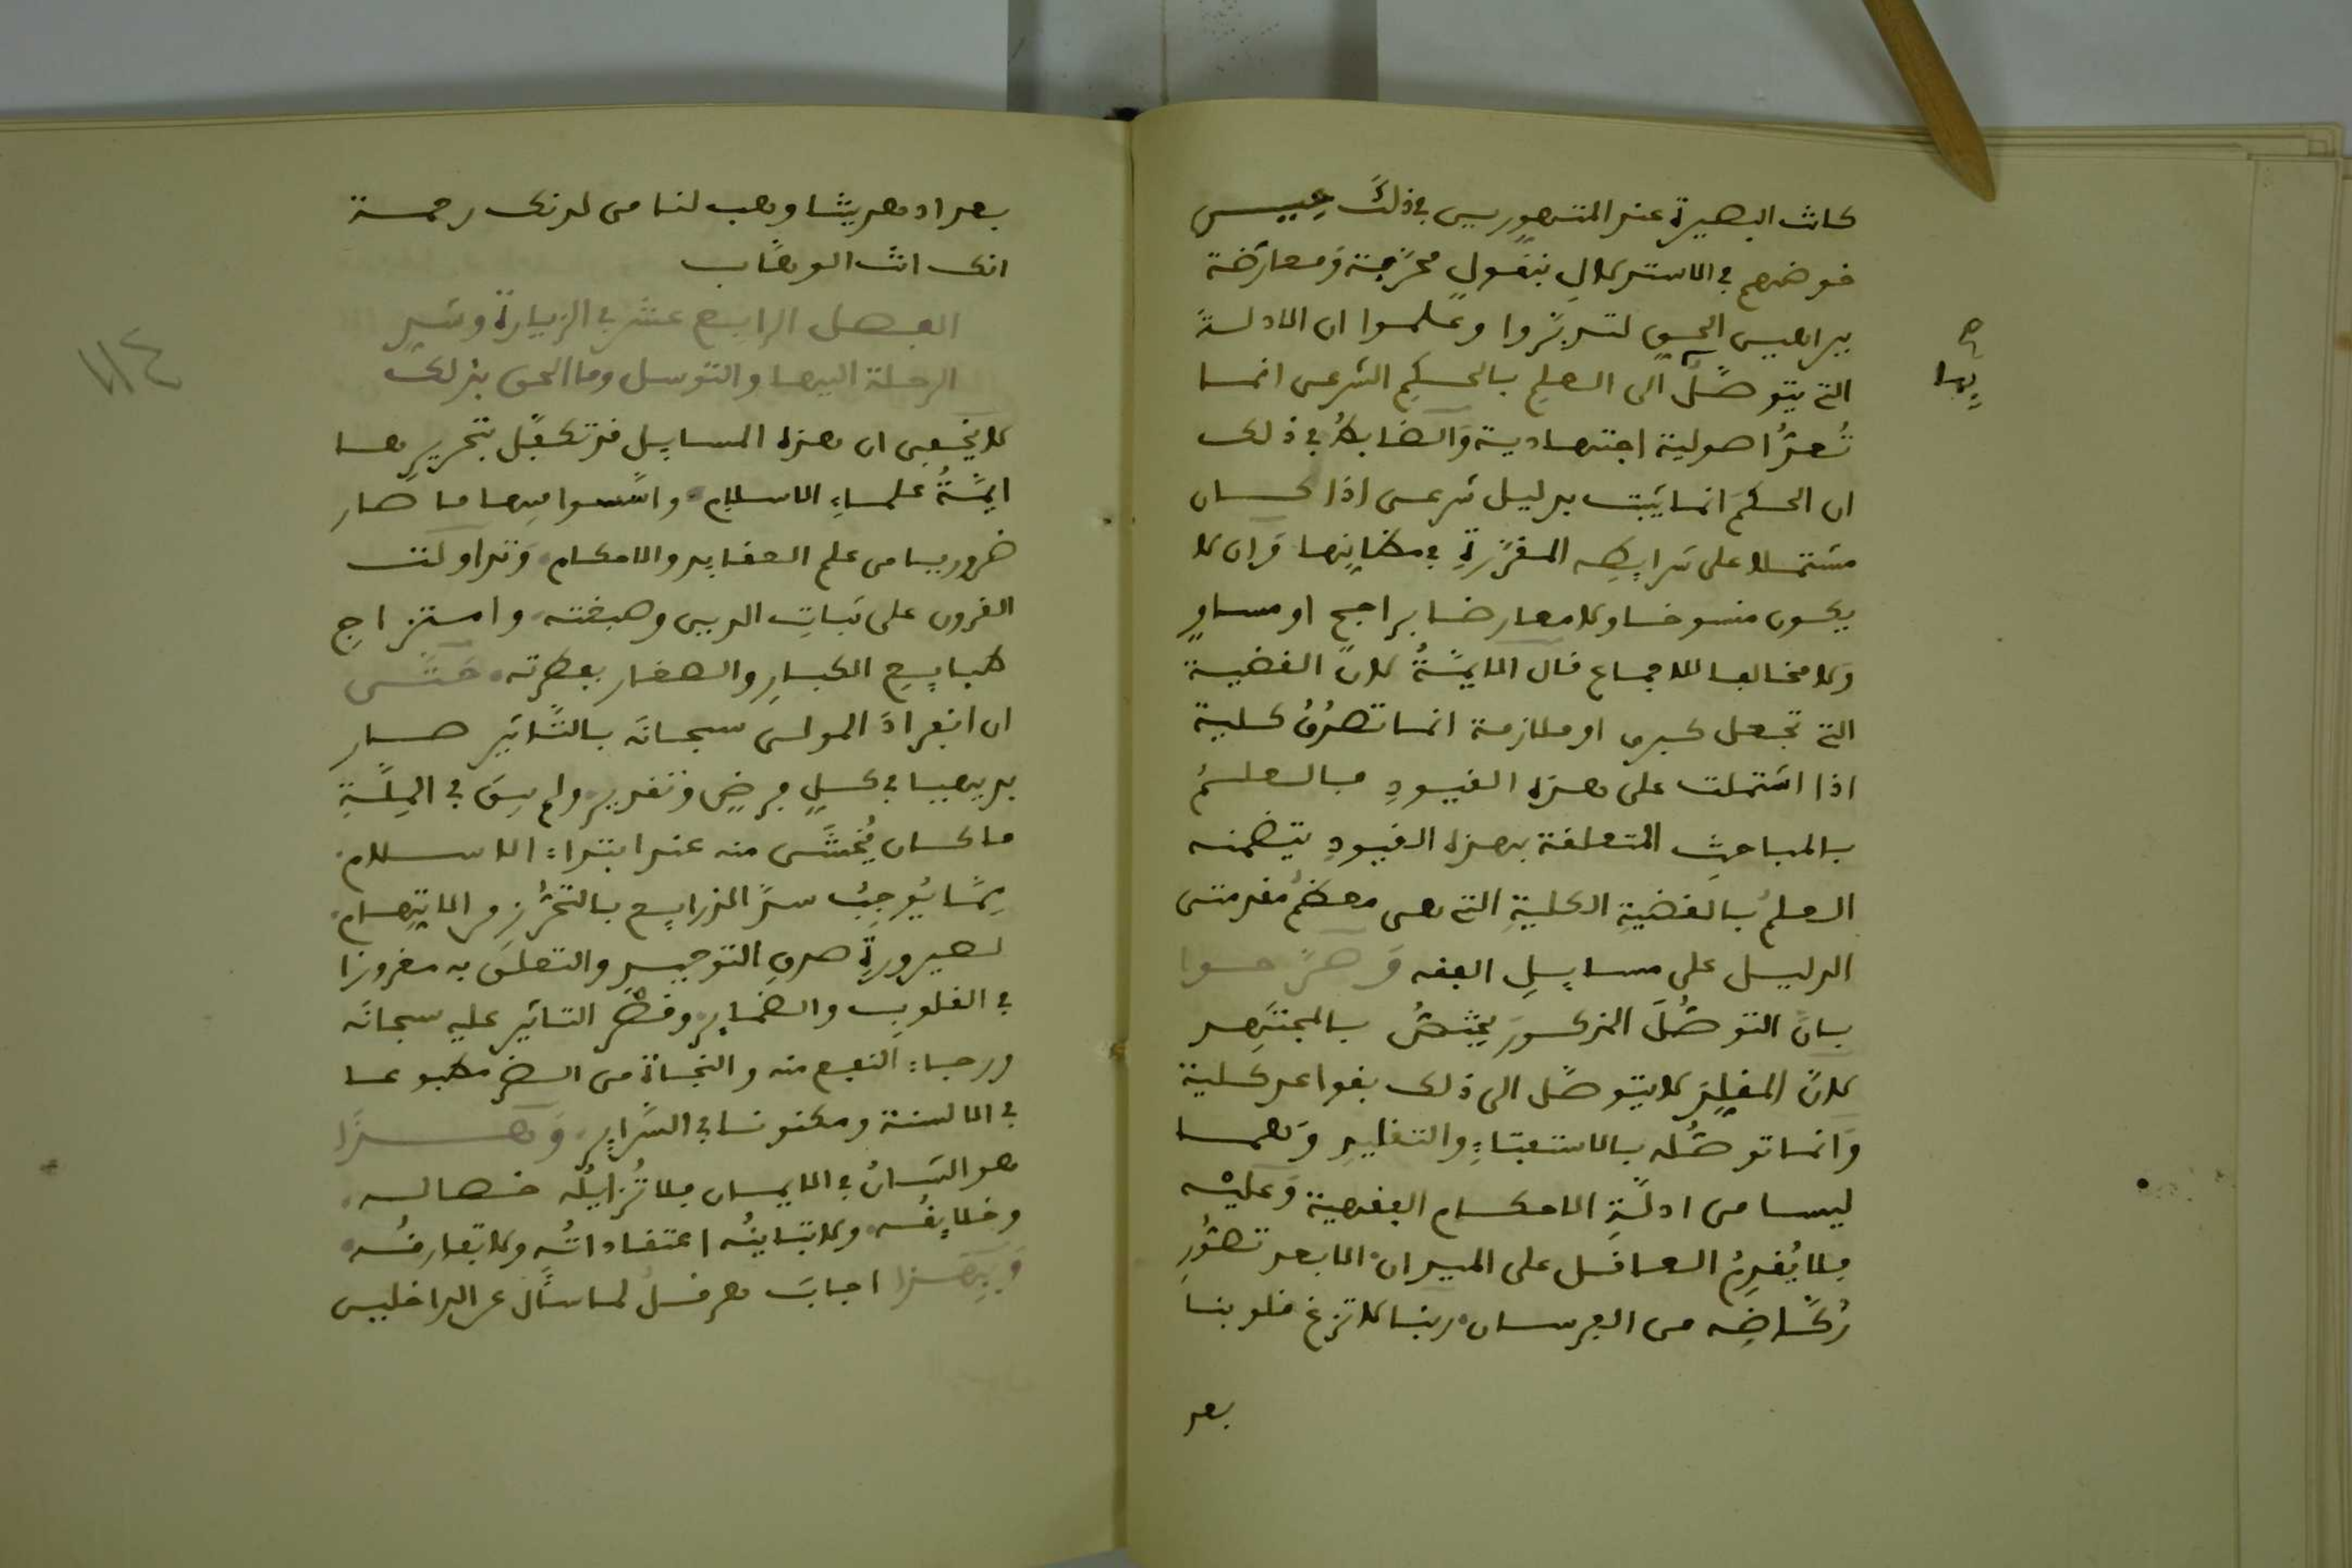 كانت البصيرة عند المتهورين في ذلك عيبس
خوضهم في الاستدلال بنقول محرجة ومعارضة
ببراهين الحق لتدبروا وعلموا ان الادلة
التي يتوصل الى العلم بالحكم الشرعى انما
بها
صح
تُعدُّ اصولية اجتهادية والضابط في ذلك
ان الحكمَ انما يثبت بدليل شرعى اذا كان
مشتملا على شرايطه المقرّرةِ في مظانِها وان لا
يكون منسوخا ولا معارضا براجح او مساوٍ
ولا مخالفا للاجماع قال الايمّةُ لانّ القضية
التي تجعل كبرى او ملازمة انما تصدُق كلية
اذا اشتملت على هذه القيودِ فالعلمُ
بالمباحثِ المتعلقة بهذه القيودِ يتضمنه
العلمُ بالقضيةِ الكليةِ التي هى معظمُ مقدمتى
الدليل على مسايلِ الفقه وَصرّحوا
بانّ التوصُّلَ المذكورَ يختصُّ بالمجتهِد
لانّ المقلِّدَ لا يتوصّل الى ذلك بقواعد كلية
وَانما توصُّله بالاستفتاءِ والتقليدِ وَهما
ليسا من ادلّةِ الاحكام الفقهية وَعليْه
فلا يُقدِمُ العاقل على الميدان الا بعد تصوُّرِ
رُكّاضِه من الفرسان ربنا لا تزغ قلوبنا
بعد
بعد اذ هديتنا وهب لنا من لدنك رحمة
انك انت الوهّاب
الفصل الرابع عشر في الزيارة وشدِّ
الرحلة اليها والتوسل وما الحق بذلك
لا يخفى ان هذه المسايل قد تكفّل بتحريرها
ايمّةُ علماءِ الاسلام واسّسوا فيها ما صار
ضروريا من علم العقايد والاحكام وَتداولت
القرون على ثباتِ الدين وصبغته وامتزاجِ
طبايعِ الكبارِ والصغار بفطرته حتّى
ان انفرادَ المولى سبحانَه بالتّاثير صار
بديهيا في كلِ فرضٍ وتقدير ولم يبقَ في المِلّةِ
ما كان يُخشَى منه عند ابتداءِ الاسلام
مِمّا يُوجِبُ سدَّ الذرايع بالتحرّزِ والاتِّهام
لصيرورةِ صرفِ التوحيدِ والتعلق به مغروزا
في القلوبِ والضماير وقصْر التاثير عليه سبحانَه
ورجاءِ النفع منه والنجاة من الضر مطبوعا
في الالسنة ومكنونا في السّراير وَهذا
هو الشانُ في الايمان فلا تُزايلُه خصاله
وخلايقُه ولا تباينُه اعتقاداتُه ولا تفارقُه
وَبِهذا اجابَ هرقلُ لما سأل عن الداخلين
١١٤